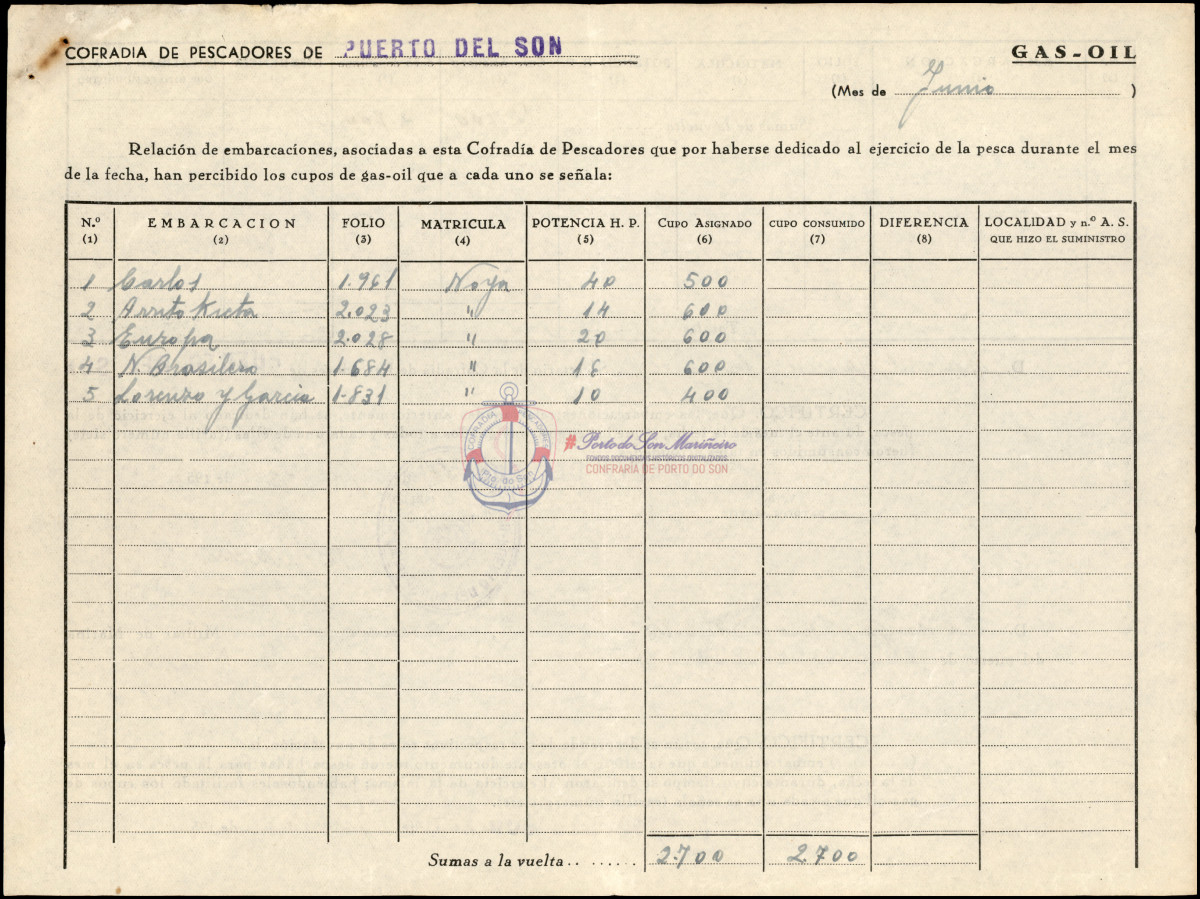 COFRADIA DE PESCADORES DE PUERTO DEL SON
GAS-OIL
(Mes de Junio )
Relación de embarcaciones, asociadas a esta Cofradía de Pescadores que por haberse dedicado al ejercicio de la pesca durante el mes
de la fecha, han percibido los cupos de gas-oil que a cada uno se señala:
N.º EMBARCACION FOLIO MATRICULA POTENCIA H. P. CUPO ASIGNADO CUPO CONSUMIDO DIFERENCIA LOCALIDAD y n.º A. S. QUE HIZO EL SUMINISTRO
(1) (2) (3) (4) (5) (6) (7) (8)
1 Carlos 1.961 Noya 40 500
2 2.023 " 14 600
3 Europa 2.028 " 20 600
4 N. Brasilero 1.684 " 600
5 Lorenzo y Garcia 1.831 " 10 400
COFRADIA PESCADORES
Pto. do Son
#Porto do Son Mariñeiro
FONDOS DOCUMENTAIS HISTÓRICOS DIXITALIZADOS
CONFRARÍA DE PORTO DO SON
Sumas a la vuelta........ 2.700 2.700